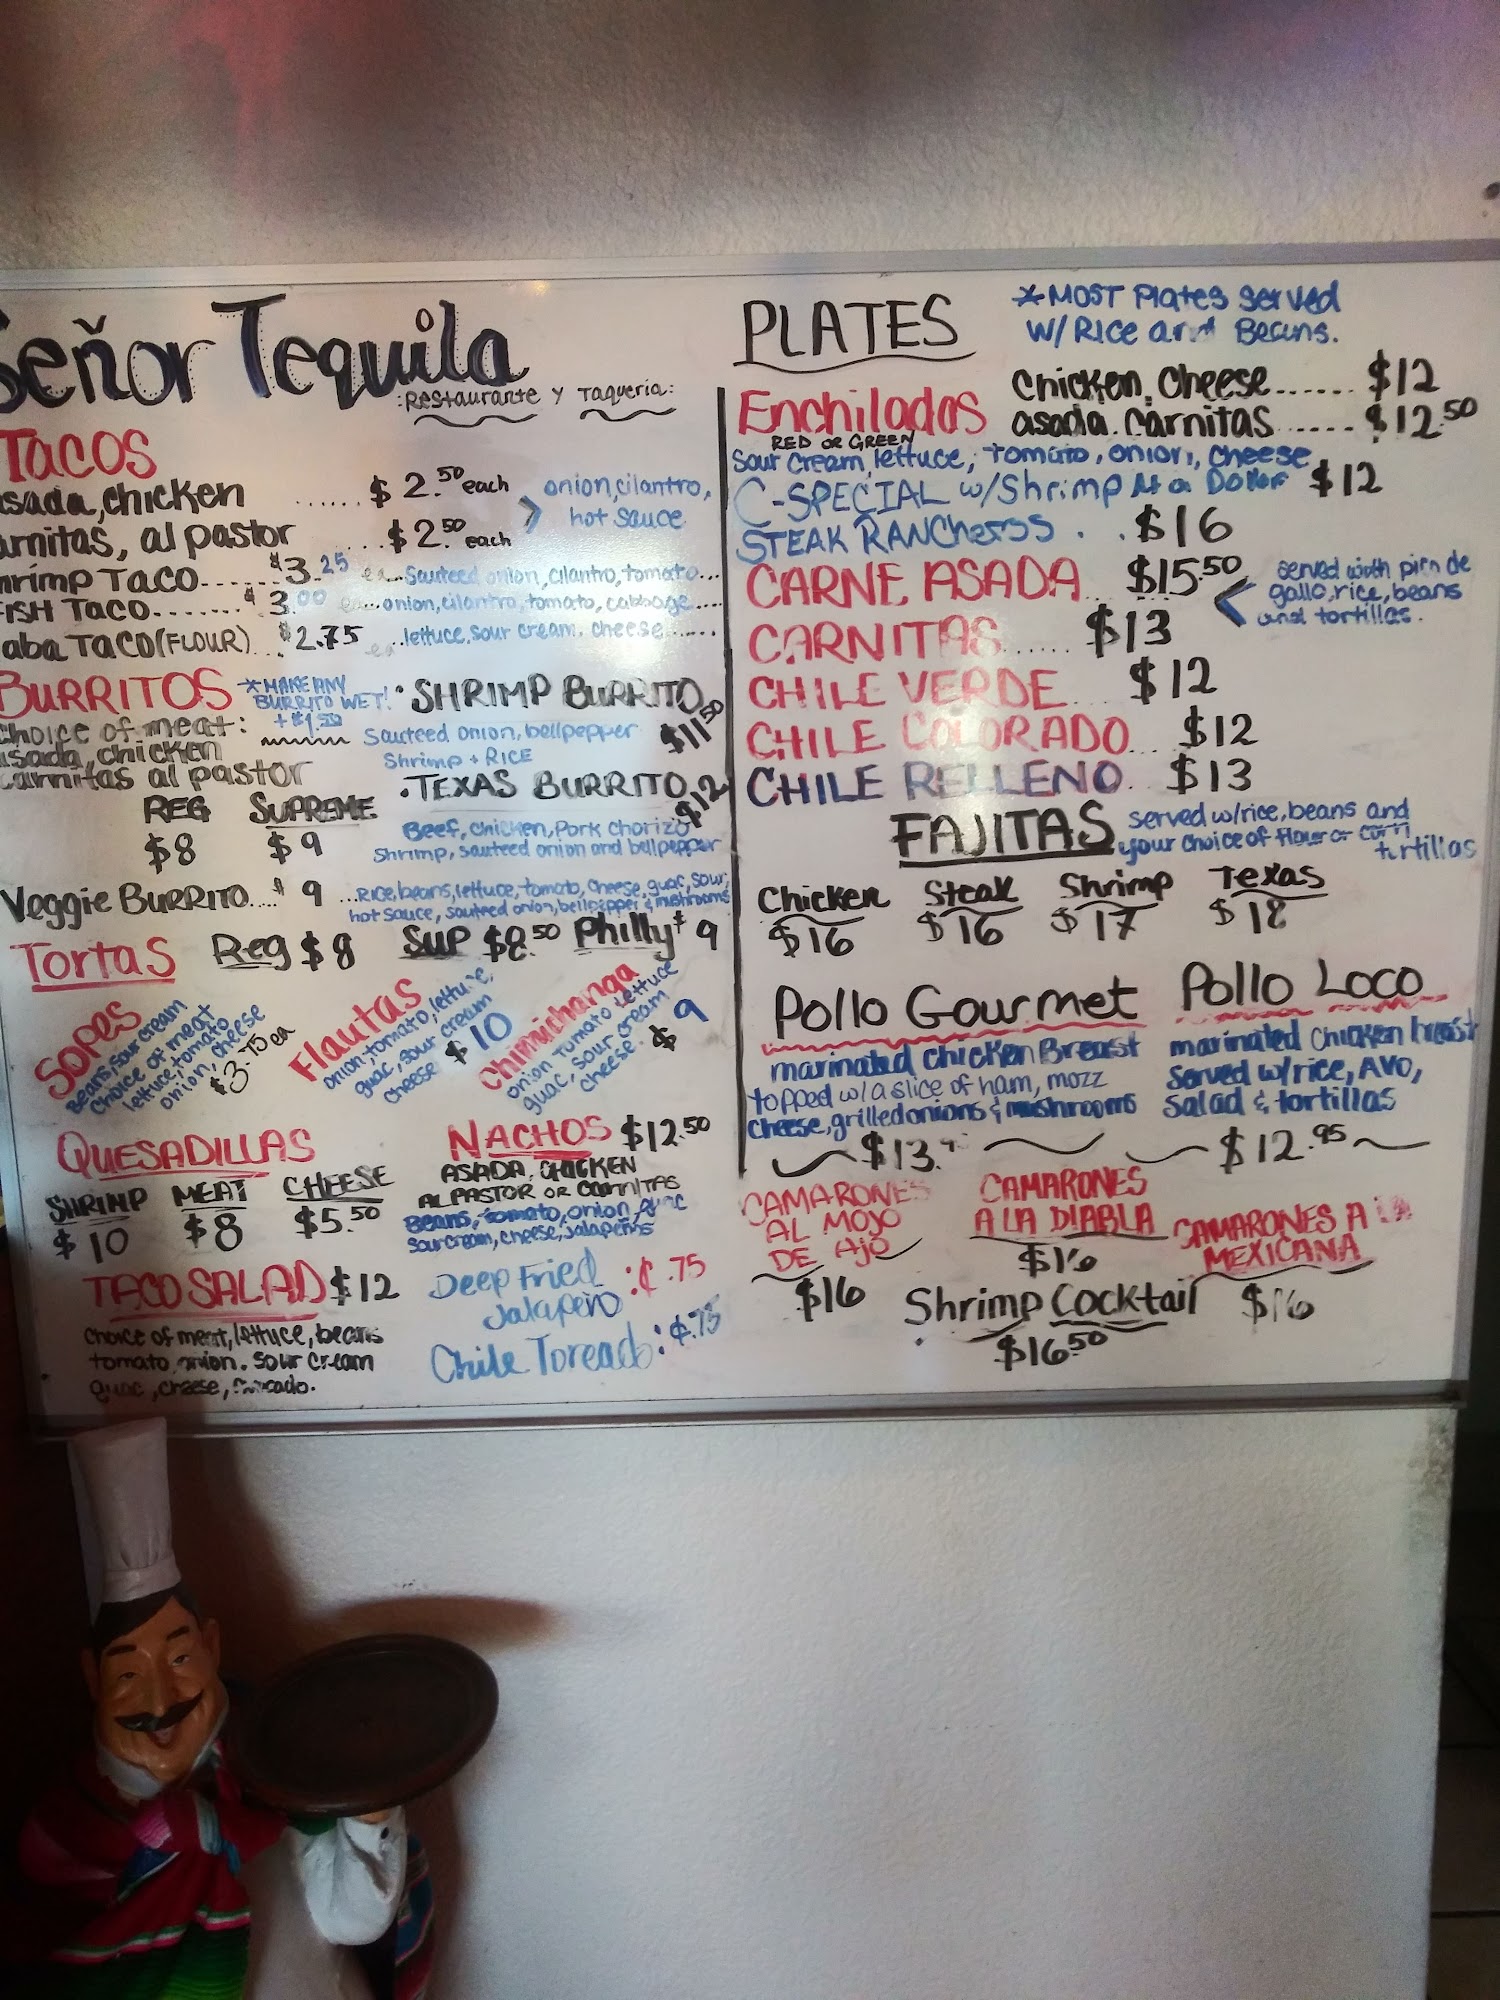 Señor Tequila
:Restaurante y Taqueria:
Tacos
asada, chicken ...... $2.50 each
carnitas, al pastor .... $2.50 each
> onion, cilantro,
hot sauce
Shrimp Taco..... $3.25 ea... Sauteed onion, cilantro, tomato...
Fish Taco....... $3.00 ea... onion, cilantro, tomato, cabbage....
Baba Taco (Flour).. $2.75 ea ...lettuce, sour cream. cheese.....
Burritos
*Make any
Burrito wet!
+ $1.50
Choice of meat:
asada, chicken
carnitas al pastor
Reg Supreme
$8 $9
·Shrimp Burrito
$11.50
Sauteed onion, bellpepper
Shrimp + Rice
·Texas Burrito
$12
Beef, chicken, Pork Chorizo
Shrimp, sauteed onion and bellpepper
Veggie Burrito....$9 ...Rice, beans, lettuce, tomato, cheese, guac, sour,
hot sauce, sauteed onion, bellpepper & mushrooms
Tortas Reg $8 Sup $8.50 Philly $9
Sopes
beans, sour cream
choice of meat
lettuce, tomato
onion, cheese
$3.75 ea
Flautas
onion, tomato, lettuce,
guac, sour cream
cheese $10
Chimichanga
onion tomato lettuce
guac, sour cream
cheese. $9
Quesadillas
Shrimp Meat Cheese
$10 $8 $5.50
Nachos $12.50
Asada, chicken
Al Pastor or carnitas
Beans, tomato, onion, guac
sourcream, cheese, jalapeños
Taco Salad $12
choice of meat, lettuce, beans
tomato, onion. sour cream
guac, cheese, avocado.
Deep Fried
Jalapeño :¢.75
Chile Toreado:¢.75
PLATES
*Most Plates served
w/Rice and Beans.
Enchiladas
Red or Green
Chicken, cheese...... $12
asada. Carnitas ..... $12.50
Sour cream, lettuce, tomato, onion, cheese
C-SPECIAL w/Shrimp $12
STEAK RANCHEROS . . $16
CARNE ASADA $15.50
< served with pico de
gallo, rice, beans
and tortillas.
CARNITAS..... $13
CHILE VERDE... $12
CHILE COLORADO... $12
CHILE RELLENO.. $13
FAJITAS
served w/rice, beans and
your choice of flour or corn
tortillas
Chicken Steak Shrimp Texas
$16 $16 $17 $18
Pollo Gourmet
marinated chicken Breast
topped w/a slice of ham, mozz
cheese, grilled onions & mushrooms
$13.
Pollo Loco
marinated Chicken breast
Served w/rice, Avo,
Salad & tortillas
$12.95
CAMARONES
AL MOJO
DE Ajo
$16
CAMARONES
A LA DIABLA
$16
CAMARONES A LA
MEXICANA
$16
Shrimp Cocktail
$16.50